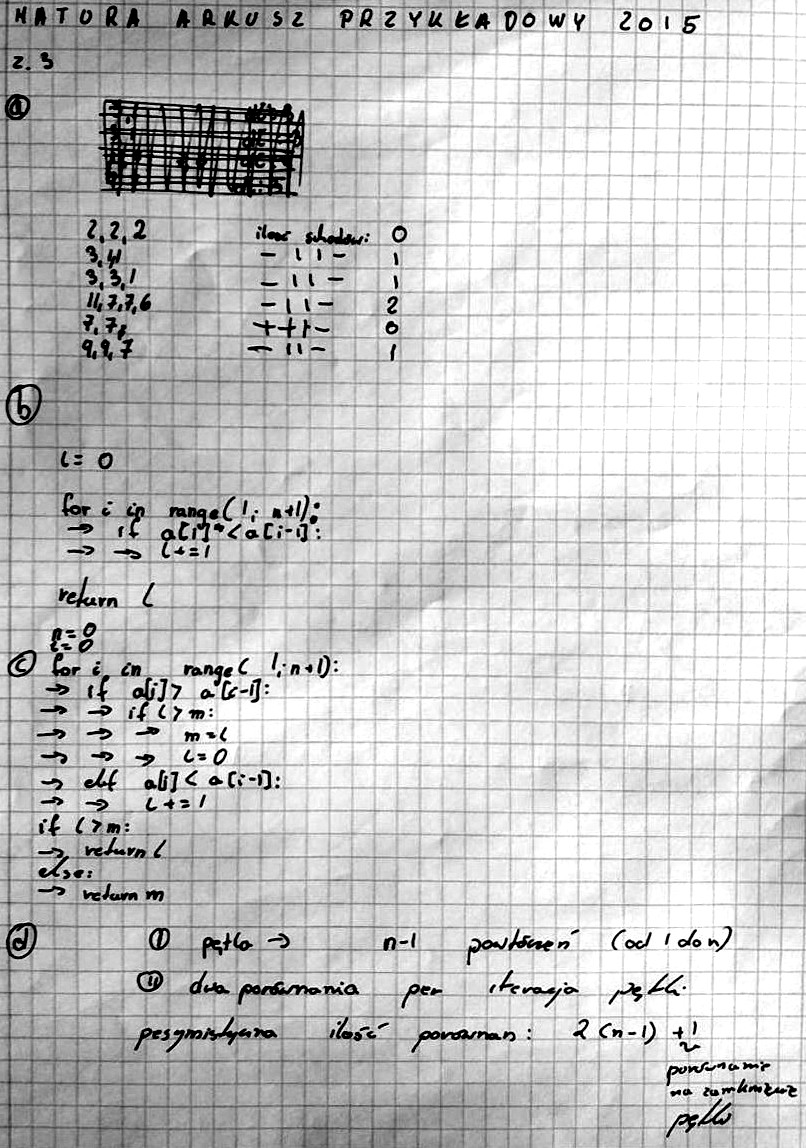 MATURA ARKUSZ PRZYKŁADOWY 2015
z. 3
a
2, 2, 2 ilość schodów: 0
3, 4 - 11 - 1
3, 3, 1 - 11 - 1
11, 7, 7, 6 - 11 - 2
7, 7, 0
9, 9, 7 - 11 - 1
b
l = 0
for i in range(1; n+1):
→ if a[i] < a[i-1]:
→ → l += 1
return l
m = 0
l = 0
c for i in range( 1; n+1):
→ if a[i] > a[i-1]:
→ → if l > m:
→ → → m = l
→ → → l = 0
→ elif a[i] < a[i-1]:
→ → l += 1
if l > m:
→ return l
else:
→ return m
d I pętla → n-1 powtórzeń (od 1 do n)
II dwa porównania per iteracja pętli.
pesymistyczna ilość porównań: 2(n-1) + 1
porównanie
na zamknięcie
pętli